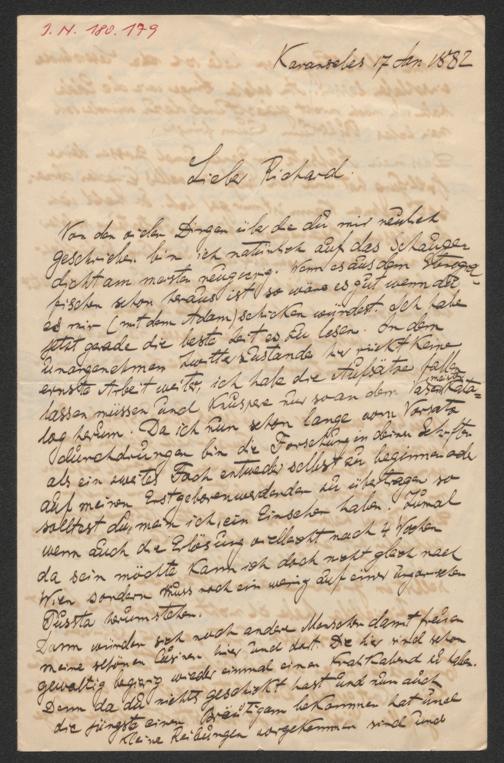 J. N. 180.179
Karansebes 17 Jan 1882
Lieber Richard.
Von den vielen Dingen über die du mir neulich
geschrieben bin ich natürlich auf das Schauer
dicht am meisten neugierig. Wenn es aus dem
schon heraus ist, so wäre es gut wenn du
es mir (mit dem Adam) schicken würdest. Ich habe
jetzt gerade die beste Zeit es zu lesen. In dem
unangenehmen Zwitterzustande hier rückt keine
ernste Arbeit weiter, ich habe die Aufsätze fallen
lassen müssen und Knuspere nur so an dem
log herum. Da ich nun schon lange vom Vorsatz
durchdrungen bin die Forschung in deinen Schriften
als ein zweites Fach entweder selbst zu beginnen oder
auf meinen Erstgeborenwerdenden zu übertragen so
solltest du, mein ich, ein Einsehen haben. Zumal
wenn auch die Erlösung vielleicht nach 4 Wochen
da sein möchte kann ich doch nicht gleich nach
Wien sondern muss noch ein wenig auf einer ungarischen
Pussta herumstehen.
Dann würden sich noch andere Menschen damit freuen
meine schönen Cusinen hier und dort. Die hier sind schon
gewaltig begierig wieder einmal einen Kralikabend zu haben.
Denn da du nichts geschickt hast und nun auch
die jüngste einen Bräutigam bekommen hat und
kleine Reibungen vorgekommen sind und